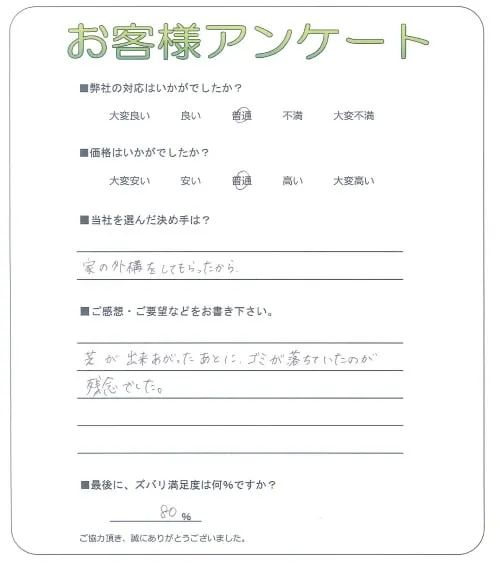 お客様アンケート
■弊社の対応はいかがでしたか？
大変良い 良い 普通 不満 大変不満
■価格はいかがでしたか？
大変安い 安い 普通 高い 大変高い
■当社を選んだ決め手は？
家の外構をしてもらったから.
■ご感想・ご要望などをお書き下さい。
芝が出来あがったあとに、ゴミが落ちていたのが
残念でした。
■最後に、ズバリ満足度は何％ですか？
80 %
ご協力頂き、誠にありがとうございました。